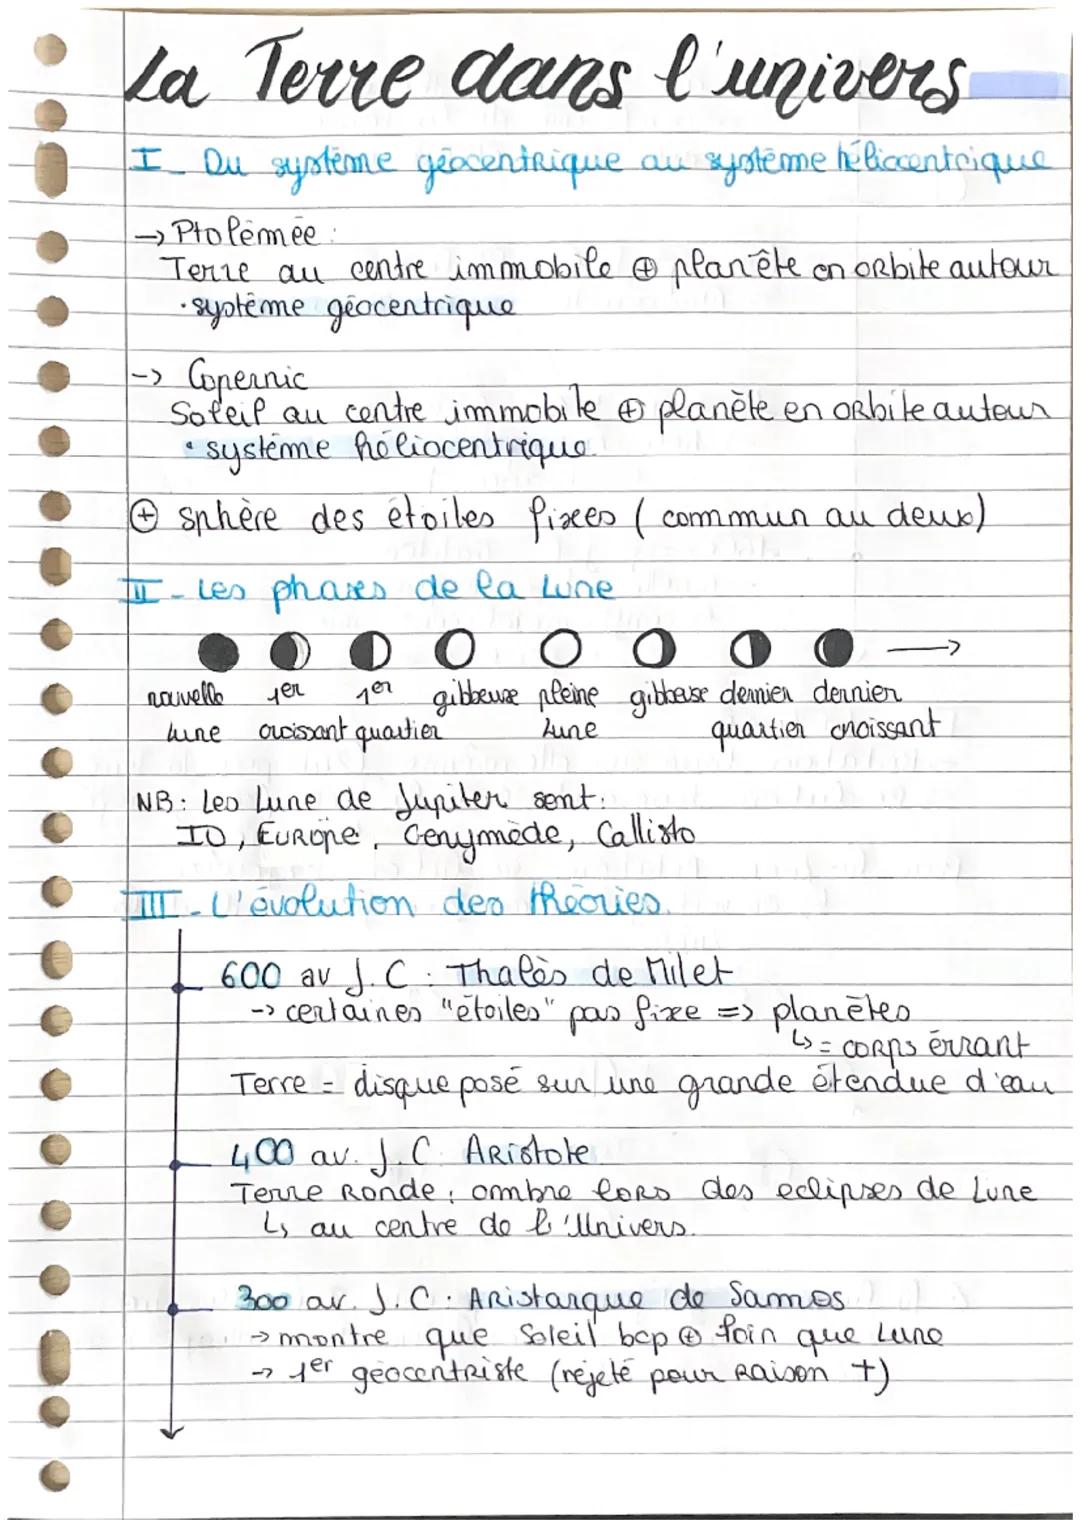 La Terre dans l'univers
I - Du système géocentrique au système héliocentrique
→ Ptolémée :
Terre au centre immobile ⊕ planête en orbite autour
· système géocentrique
-> Copernic
Soleil au centre immobile ⊕ planète en orbite autour
• système héliocentrique.
⊕ sphère des étoiles fixees (commun au deux)
II - Les phases de la Lune
nouvelle 1er 1er gibbeuse pleine gibbeuse dernier dernier
Lune croissant quartier Lune quartier croissant
NB : Les Lune de Jupiter sont :
IO, EUROPE, Genymède, Callisto
III - L'évolution des théories.
600 av J.C : Thalès de Milet
-> certaines "étoiles" pas fixe => planètes
↳ = corps érrant
Terre = disque posé sur une grande étendue d'eau
400 av. J.C. Aristote
Terre Ronde, ombre lors des eclipses de Lune
↳ au centre de l'Univers.
300 av. J.C : Aristarque de Samos
→ montre que Soleil bcp ⊕ loin que Lune
-> 1er géocentriste (réjeté pour raison +)